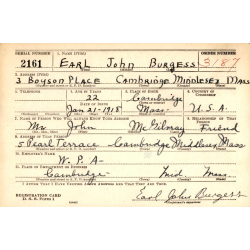 SERIAL NUMBER 1. NAME (Print) ORDER NUMBER
2161 EARL John BURGESS 3187
2. ADDRESS (Print)
3 Boyson PLACE Cambridge Middlesex Mass
3. TELEPHONE 4. AGE IN YEARS 5. PLACE OF BIRTH 6. COUNTRY OF CITIZENSHIP
22 Cambridge
DATE OF BIRTH
Jan 21-1918 Mass. U.S.A.
7. NAME OF PERSON WHO WILL ALWAYS KNOW YOUR ADDRESS 8. RELATIONSHIP OF THAT PERSON
Mr John McGilvray Friend
9. ADDRESS OF THAT PERSON
5 Pearl Terrace Cambridge Middlesex Mass
10. EMPLOYER'S NAME
W.P.A-
11. PLACE OF EMPLOYMENT OR BUSINESS
Cambridge Mid Mass.
I AFFIRM THAT I HAVE VERIFIED ABOVE ANSWERS AND THAT THEY ARE TRUE.
REGISTRATION CARD
D. S. S. FORM 1 Earl John Burgess